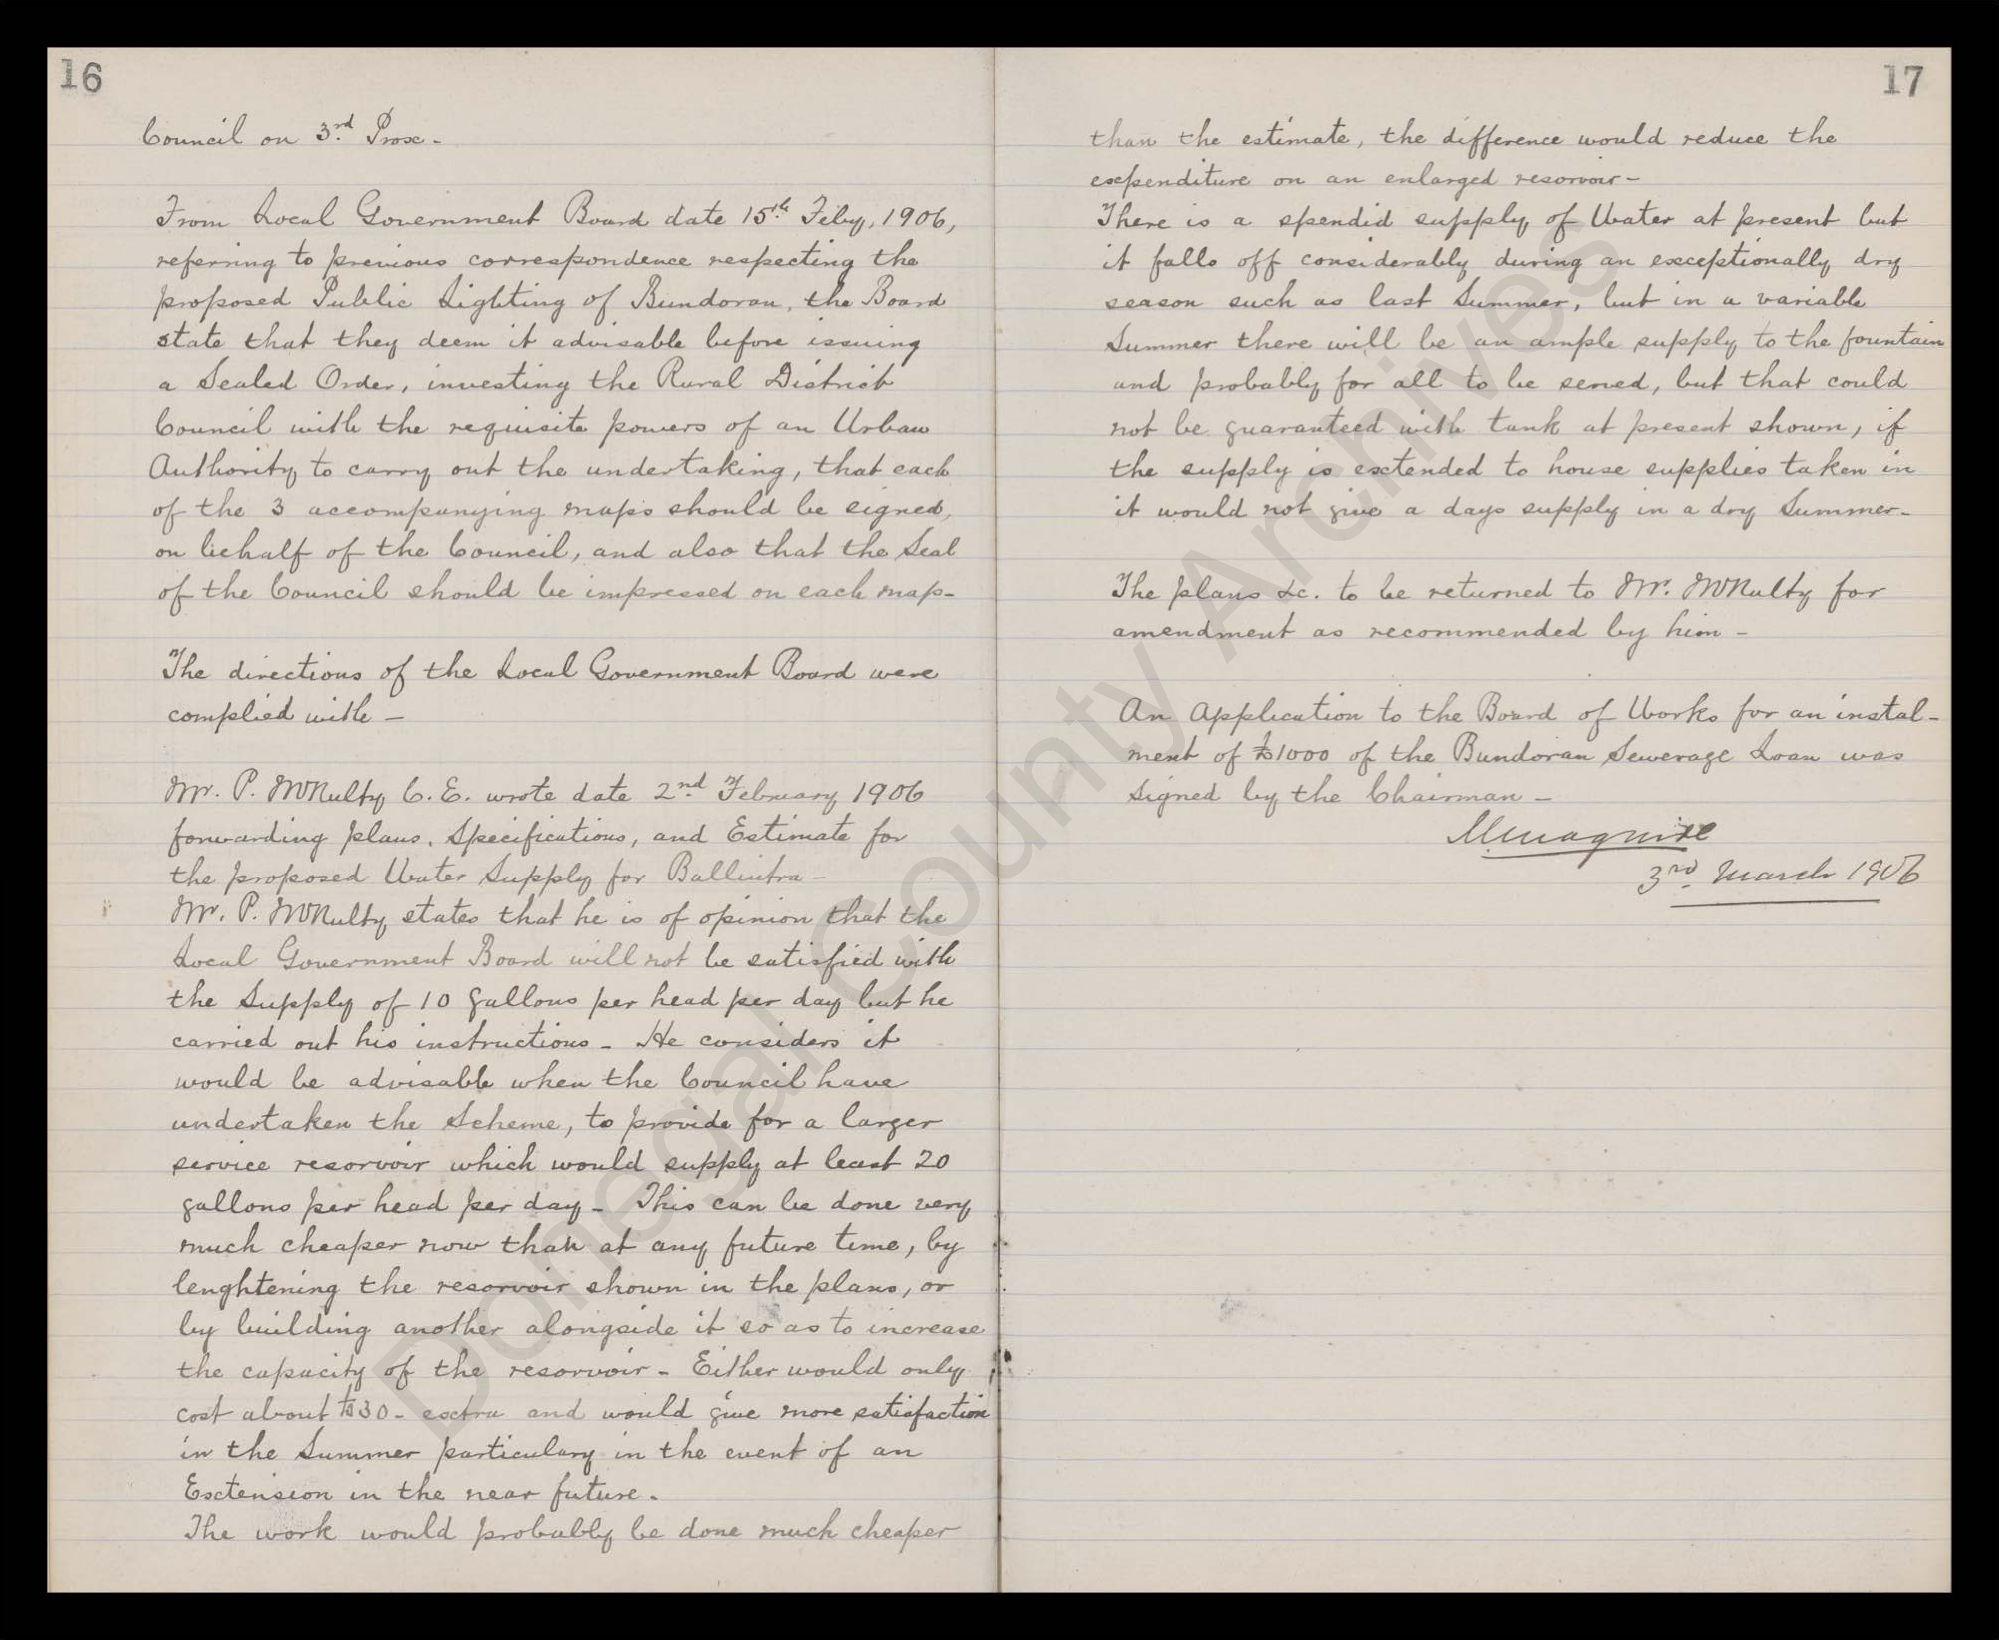 16
Council on 3rd Prox.
From Local Government Board date 15th Feby, 1906,
referring to previous correspondence respecting the
proposed Public Lighting of Bundoran, the Board
state that they deem it advisable before issuing
a Sealed Order, investing the Rural District
Council with the requisite powers of an Urban
Authority to carry out the undertaking, that each
of the 3 accompanying maps should be signed,
on behalf of the Council, and also that the Seal
of the Council should be impressed on each map-
The directions of the Local Government Board were
complied with -
Mr. P. McNulty C. E. wrote date 2nd February 1906
forwarding plans, Specifications, and Estimate for
the proposed Water Supply for Ballintra -
Mr. P. McNulty states that he is of opinion that the
Local Government Board will not be satisfied with
the Supply of 10 gallons per head per day but he
carried out his instructions - He considers it
would be advisable when the Council have
undertaken the Scheme, to provide for a larger
service resorvoir which would supply at least 20
gallons per head per day - This can be done very
much cheaper now than at any future time, by
lenghtening the resorvoir shown in the plans, or
by building another alongside it so as to increase
the capacity of the resorvoir - Either would only
cost about £30 - extra and would give more satisfaction
in the Summer particulary in the event of an
Extension in the near future.
The work would probably be done much cheaper
17
than the estimate, the difference would reduce the
expenditure on an enlarged resorvoir -
There is a spendid supply of Water at present but
it falls off considerably during an exceptionally dry
season such as last Summer, but in a variable
Summer there will be an ample supply to the fountain
and probably for all to be served, but that could
not be guaranteed with tank at present shown, if
the supply is extended to house supplies taken in
it would not give a days supply in a dry Summer -
The plans &c. to be returned to Mr. McNulty for
amendment as recommended by him -
An Application to the Board of Works for an instal-
ment of £1000 of the Bundoran Sewerage Loan was
signed by the Chairman -
MMaguire
3rd March 1906
Donegal County Archives